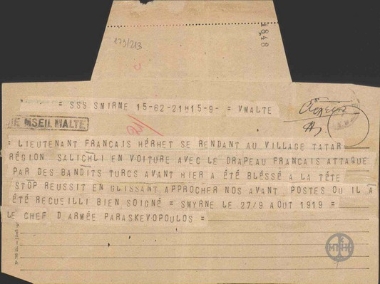 175/213
= SSS SMIRNE 15-02-21H15-9- = VMALTE
CONSEIL MALTE
= LIEUTENANT FRANCAIS HERHET SE RENDANT AU VILLAGE TATAR
RÉGION SALICHLI EN VOITURE AVEC LE DRAPEAU FRANCAIS ATTAQUE
PAR DES BANDITS TURCS AVANT HIER A ÉTÉ BLÉSSÉ A LA TÊTE
STOP REUSSIT EN GLISSANT APPROCHER NOS AVANT POSTES OU IL A
ÉTÉ RECUEILLI BIEN SOIGNÉ = SMYRNE LE 27/8 AOUT 1919 =
LE CHEF D ARMÉE PARASKEVOPOULOS =